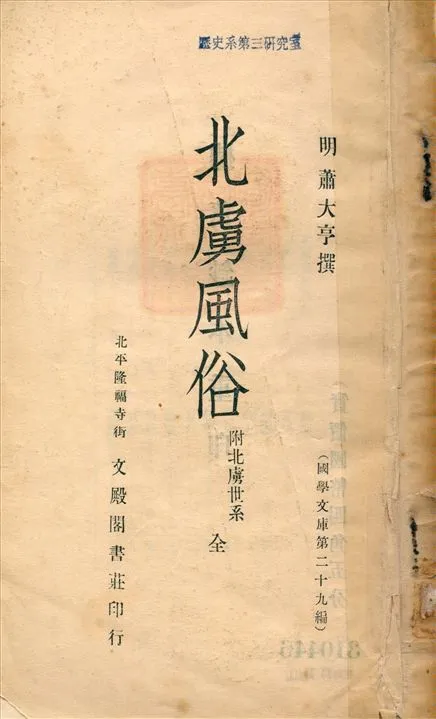 歷史系第三研究室
明蕭大亨撰
(國學文庫第二十九編)
北虜風俗
附北虜世系
全
北平隆福寺街
文殿閣書莊印行
310445